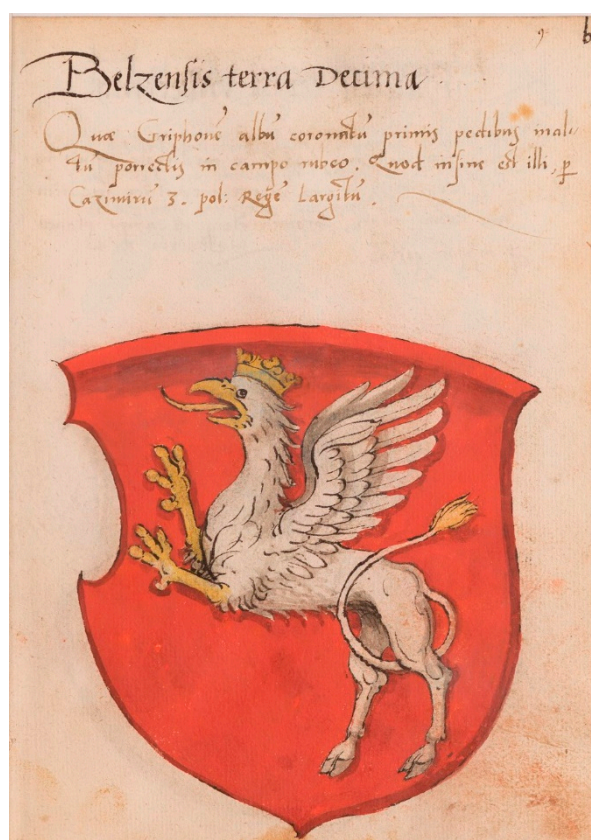 9.
b
Belzensis terra Decima
Quæ Griphonē albū coronatū primis pedibus mul-
tū porrectis in campo rubeo. Quod insine est illi p
Cazimirū 3. pol: Regē Largitū.